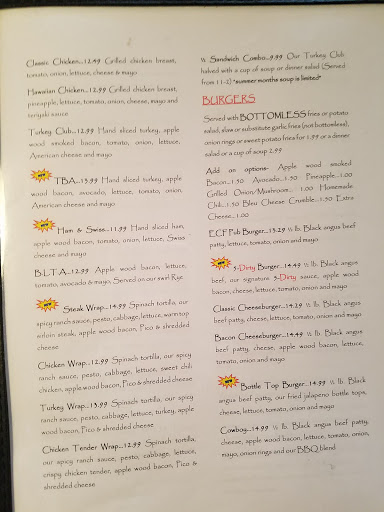 Classic Chicken...12.49 Grilled chicken breast,
tomato, onion, lettuce, cheese & mayo
Hawaiian Chicken...12.99 Grilled chicken breast,
pineapple, lettuce, tomato, onion, cheese, mayo and
teriyaki sauce
Turkey Club...12.99 Hand sliced turkey, apple
wood smoked bacon, tomato, onion, lettuce,
American cheese and mayo
TBA...13.99 Hand sliced turkey, apple
wood bacon, avocado, lettuce, tomato, onion,
American cheese and mayo
Ham & Swiss...11.99 Hand sliced ham,
apple wood bacon, tomato, onion, lettuce, Swiss
cheese and mayo
B.L.T.A...12.99 Apple wood bacon, lettuce,
tomato, avocado & mayo, Served on our swirl Rye
Steak Wrap...14.99 Spinach tortilla, our
spicy ranch sauce, pesto, cabbage, lettuce, warm top
sirloin steak, apple wood bacon, Pico & shredded
cheese
Chicken Wrap...12.99 Spinach tortilla, our spicy
ranch sauce, pesto, cabbage, lettuce, sweet chili
chicken, apple wood bacon, Pico & shredded cheese
Turkey Wrap...13.99 Spinach tortilla, our spicy
ranch sauce, pesto, cabbage, lettuce, turkey, apple
wood bacon, Pico & shredded cheese
Chicken Tender Wrap...12.99 Spinach tortilla,
our spicy ranch sauce, pesto, cabbage, lettuce,
crispy chicken tender, apple wood bacon, Pico &
shredded cheese
½ Sandwich Combo...9.99 Our Turkey Club
halved with a cup of soup or dinner salad (Served
from 11-2) *summer months soup is limited*
BURGERS
Served with BOTTOMLESS fries or potato
salad, slaw or substitute garlic fries (not bottomless),
onion rings or sweet potato fries for 1.99 or a dinner
salad or a cup of soup 2.99
Add on options- Apple wood smoked
Bacon...1.50 Avocado...1.50 Pineapple...1.00
Grilled Onion/Mushroom... 1.00 Homemade
Chili...1.50 Bleu Cheese Crumble...1.50 Extra
Cheese...1.00
ECF Pub Burger...13.29 ½ lb. Black angus beef
patty, lettuce, tomato, onion and mayo
5-Dirty Burger...14.49 ½ lb. Black angus
beef, our signature 5-Dirty sauce, apple wood
bacon, cheese, lettuce, tomato, onion and mayo
Classic Cheeseburger...14.29 ½ lb. Black angus
beef patty, cheese, lettuce, tomato, onion and mayo
Bacon Cheeseburger...14.49 ½ lb. Black angus
beef patty, cheese, apple wood bacon, lettuce,
tomato, onion and mayo
Bottle Top Burger...14.99 ½ lb. Black
angus beef patty, our fried jalapeno bottle tops,
cheese, lettuce, tomato, onion and mayo
Cowboy...14.99 ½ lb. Black angus beef patty,
cheese, apple wood bacon, lettuce, tomato, onion,
mayo, onion rings and our BBQ blend